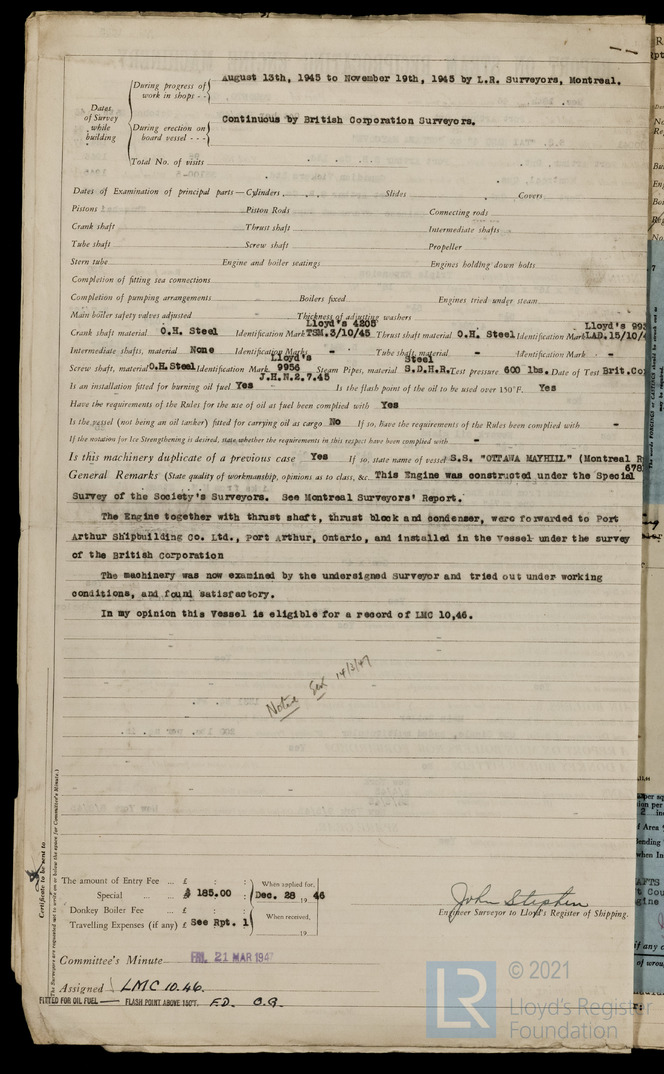 During progress of work in shops - - August 13th, 1945 to November 19th, 1945 by L.R. Surveyors, Montreal.
Dates of Survey while building
During erection on board vessel - - - Continuous by British Corporation Surveyors.
Total No. of visits
Dates of Examination of principal parts—Cylinders Slides Covers
Pistons Piston Rods Connecting rods
Crank shaft Thrust shaft Intermediate shafts
Tube shaft Screw shaft Propeller
Stern tube Engine and boiler seatings Engines holding down bolts
Completion of fitting sea connections
Completion of pumping arrangements Boilers fixed Engines tried under steam
Main boiler safety valves adjusted Thickness of adjusting washers
Lloyd's 4205 Lloyd's 993
Crank shaft material O.H. Steel Identification Mark TSM.3/10/45 Thrust shaft material O.H. Steel Identification Mark LAD.15/10/4
Intermediate shafts, material None Identification Marks - Tube shaft, material - Identification Mark -
Lloyd's Steel
Screw shaft, material O.H.Steel Identification Mark 9956 Steam Pipes, material S.D.H.R. Test pressure 600 lbs. Date of Test Brit.Co
J.H.N.2.7.45
Is an installation fitted for burning oil fuel Yes Is the flash point of the oil to be used over 150°F. Yes
Have the requirements of the Rules for the use of oil as fuel been complied with Yes
Is the vessel (not being an oil tanker) fitted for carrying oil as cargo No If so, have the requirements of the Rules been complied with -
If the notation for Ice Strengthening is desired, state whether the requirements in this respect have been complied with -
Is this machinery duplicate of a previous case Yes If so, state name of vessel S.S. "OTTAWA MAYHILL" (Montreal R
678
General Remarks (State quality of workmanship, opinions as to class, &c. This Engine was constructed under the Special
Survey of the Society's Surveyors. See Montreal Surveyors' Report.
The Engine together with thrust shaft, thrust block and condenser, were forwarded to Port
Arthur Shipbuilding Co. Ltd., Port Arthur, Ontario, and installed in the Vessel under the survey
of the British Corporation
The machinery was now examined by the undersigned Surveyor and tried out under working
conditions, and found satisfactory.
In my opinion this Vessel is eligible for a record of LMC 10,46.
14/3/47
Certificate to be sent to
The amount of Entry Fee ... £ : : When applied for,
Special ... ... $ 185.00 : Dec. 28 19 46
Donkey Boiler Fee ... £ : : When received,
Travelling Expenses (if any) £ See Rpt. 1 19
John Stephen
Engineer Surveyor to Lloyd's Register of Shipping.
Committee's Minute FRI. 21 MAR 1947
Assigned LMC 10.46.
FITTED FOR OIL FUEL — FLASH POINT ABOVE 150°F. F.D. C.G.
LR
© 2021
Lloyd's Register
Foundation